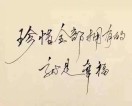 珍惜全部拥有的
就是幸福